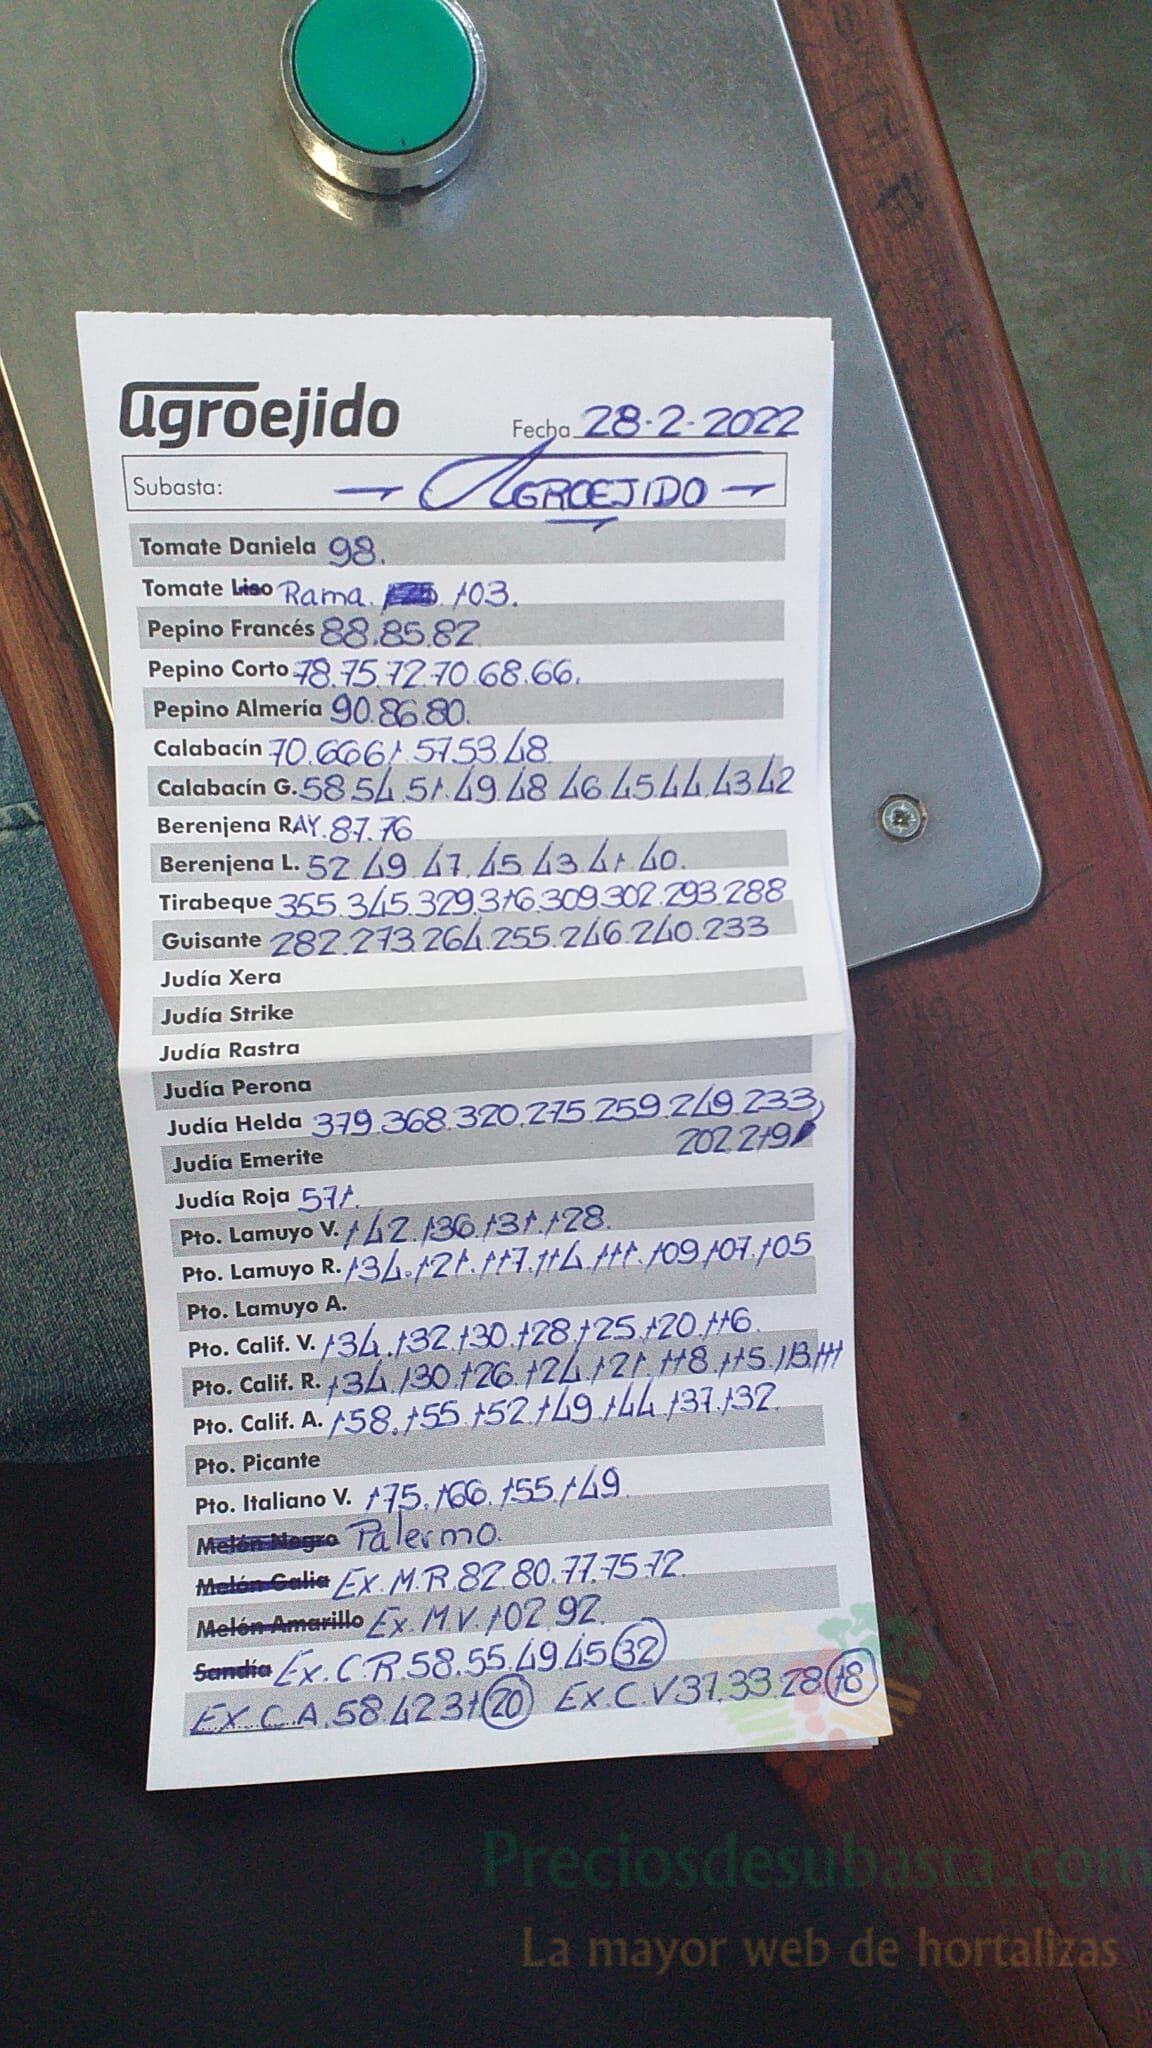 agroejido
Fecha 28-2-2022
Subasta: - AGROEJIDO -
Tomate Daniela 98.
Tomate Liso Rama. 103.
Pepino Francés 88.85.82
Pepino Corto 78.75.72.70.68.66.
Pepino Almería 90.86.80.
Calabacín 70.66 61.57 53.48.
Calabacín G. 58 54.51.49.48 46.45.44.43.42
Berenjena RAY. 87.76
Berenjena L. 52 49 47.45.43.41.40.
Tirabeque 355.345.329.316.309.302.293.288
Guisante 282.273.264.255.246.240.233
Judía Xera
Judía Strike
Judía Rastra
Judía Perona
Judía Helda 379.368.320.275.259.249.233
202.219
Judía Emerite
Judía Roja 571.
Pto. Lamuyo V. 142.136.131.128.
Pto. Lamuyo R. 134.121.117.114.111.109.107.105
Pto. Lamuyo A.
Pto. Calif. V. 134.132.130.128.125.120.116.
Pto. Calif. R. 134.130.126.124.121.118.115.113.111
Pto. Calif. A. 158.155.152.149.144.137.132.
Pto. Picante
Pto. Italiano V. 175.166.155.149.
Melón Negro Palermo.
Melón Galia Ex.M.R.82.80.77.75.72.
Melón Amarillo Ex.M.V.102.92.
Sandía Ex.C.R.58.55.49.45 32
EX.C.A.58.42 31 20 Ex.C.V 37.33.28 18
Preciosdesubasta.com
La mayor web de hortalizas